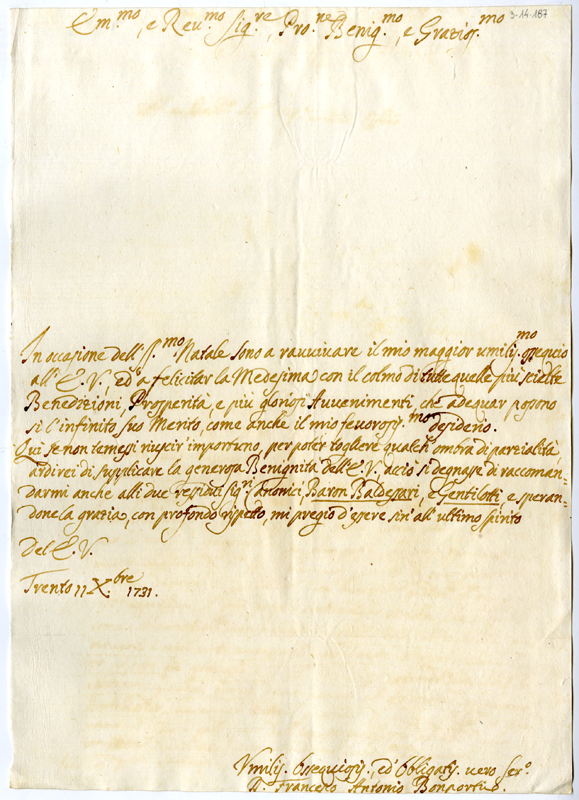 3-14-187
Em.mo, e Rev.mo Sig.re, Pro.ne Benig.mo, e Grazios.mo
In occasione dell' S.mo Natale sono a ravvivare il mio maggior umilis.mo ossequio
all' E. V., ed' a felicitar la Medesima con il colmo di tutte quelle più scielte
Benedizioni, Prosperità, e più gloriosi Avvenimenti, che adequar possono
si l'infinito suo Merito, come anche il mio fevoros.mo desiderio.
Qui se non temessi riuscir' importuno, per poter togliere qualch' ombra di parzialità
ardirei di supplicare la generosa Benignità dell' E. V. acciò si degnasse di raccoman-
darmi anche alli due residui sig.ri Canonici Baron Baldessari, e Gentilotti e speran-
done la grazia, con profondo rispetto, mi pregio d'essere sin' all' ultimo spirito
Del E. V.
Trento 11 X.bre 1731.
Umilis. Ossequiosis. ed' Obbligatis. vero Ser.o
Francesco Antonio Bonporti